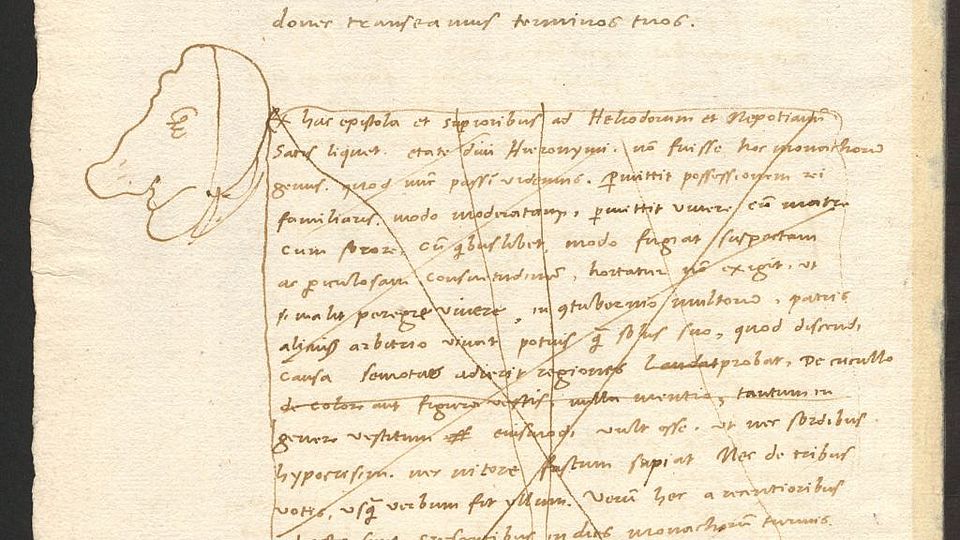 donec transeamus terminos tuos.
Ex hac epistola et superioribus ad Heliodorum et Nepotianū
Satis liquet. etate diui Hieronymi. nō fuisse hoc monachorū
genus. quod nūc passī uidemus. permittit possessionem rei
familiaris. modo moderatam, permittit viuere cū matre
cum sorore, cū qbuslibet, modo fugiat suspectam
ac periculosam consuetudinē, hortatur nō exigit, ut
si malit peregre viuere, in 9tubernio multorū, patris
alicuius arbitrio viuat potius q̄ solus suo, quod discendi
causa semotas adierit regiones Laudat probat, De cucullo
de colore aut figura vestis, nulla mentio, tantum in
genere vestitum eiusmodi vult esse. ut nec sordibus
hypocrisim. nec nitore fastum sapiat Nec de tribus
votis, usq̄ verbum fit vllum. Verū hec a recentioribus
in dies monachorū turmis.